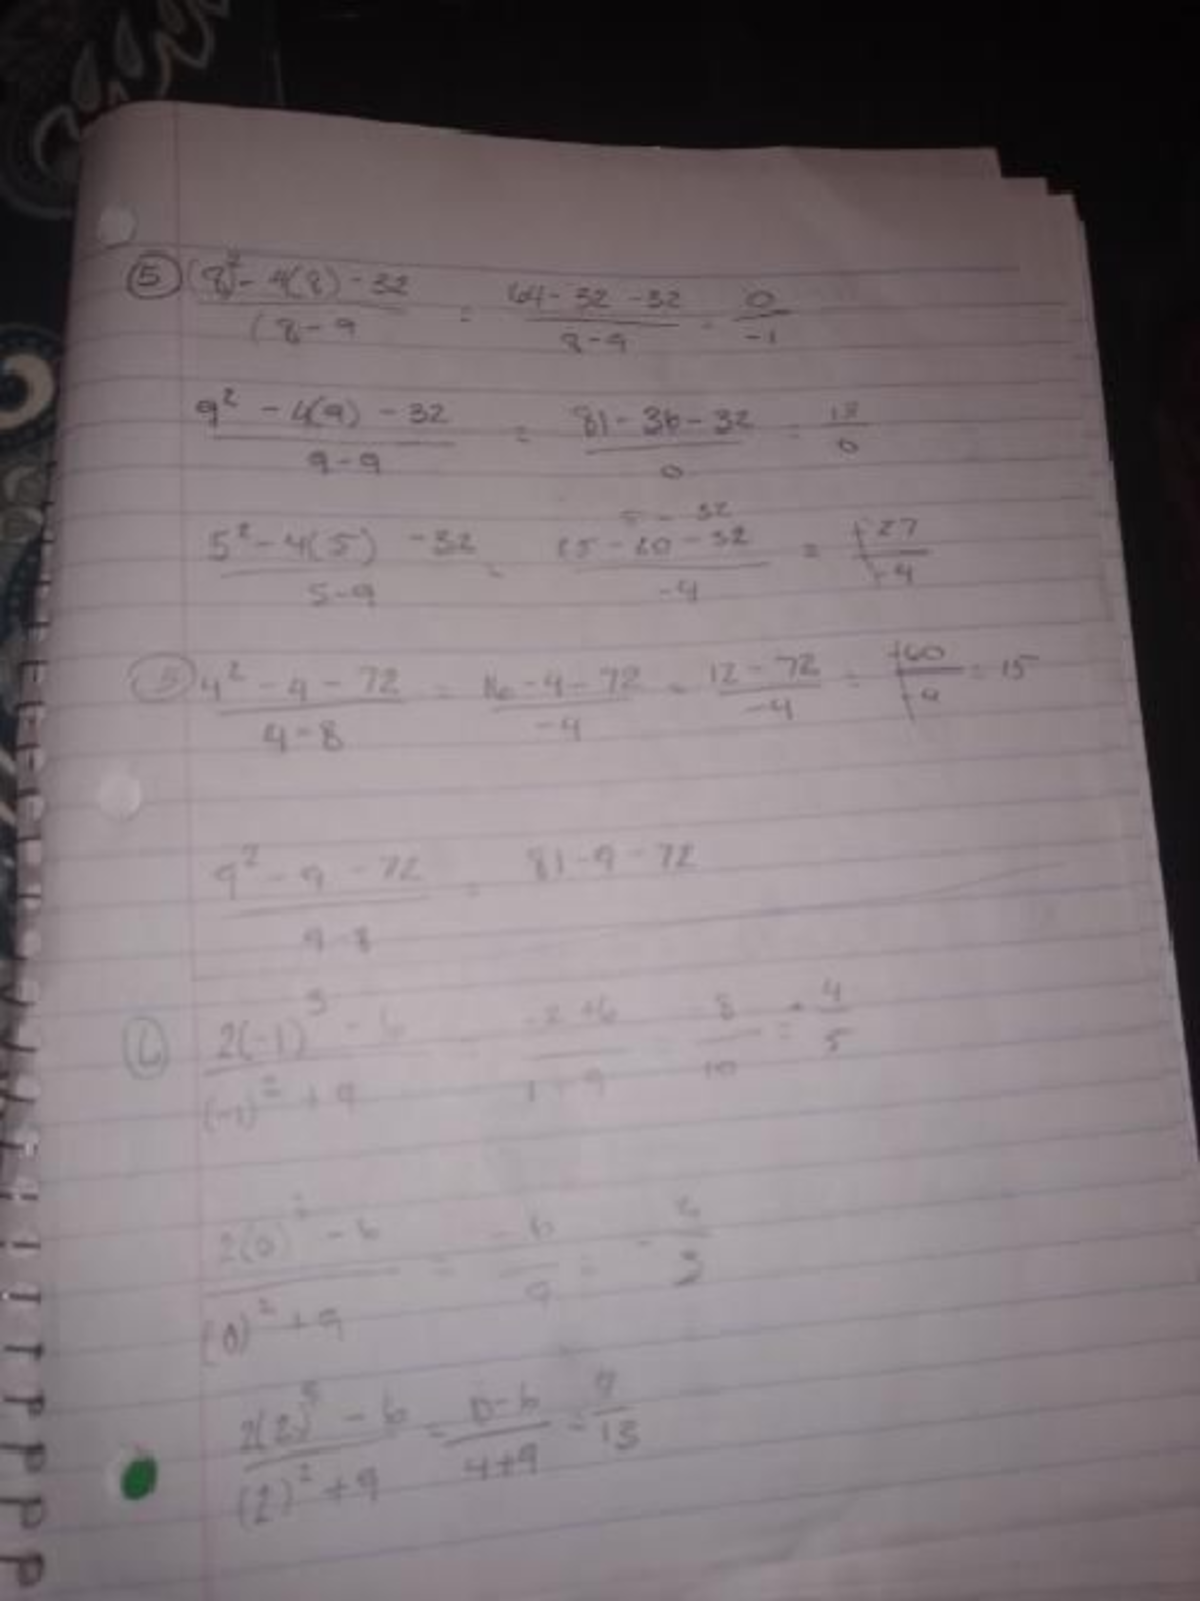 ⑤ (8)² - 4(8) - 32 / (8 - 9 = 64 - 32 - 32 / 8 - 9 = 0 / -1
9² - 4(9) - 32 / 9 - 9 = 81 - 36 - 32 / 0 = 13 / 0
= - 32
5² - 4(5) - 32 / 5 - 9 = 25 - 20 - 32 / -4 = -27 / -4
⑤ 4² - 4 - 72 / 4 - 8 = 16 - 4 - 72 / -4 = 12 - 72 / -4 = -60 / -4 = 15
9² - 9 - 72 / 9 - 8 = 81 - 9 - 72
⑥ 2(-1)³ - 6 / (-1)² + 9 = -2 + 6 / 1 + 9 = -8 / 10 = -4 / 5
2(0)³ - 6 / (0)² + 9 = -6 / 9 = - / 3
2(2)³ - 6 / (2)² + 9 = - 6 / 4 + 9 = / 13